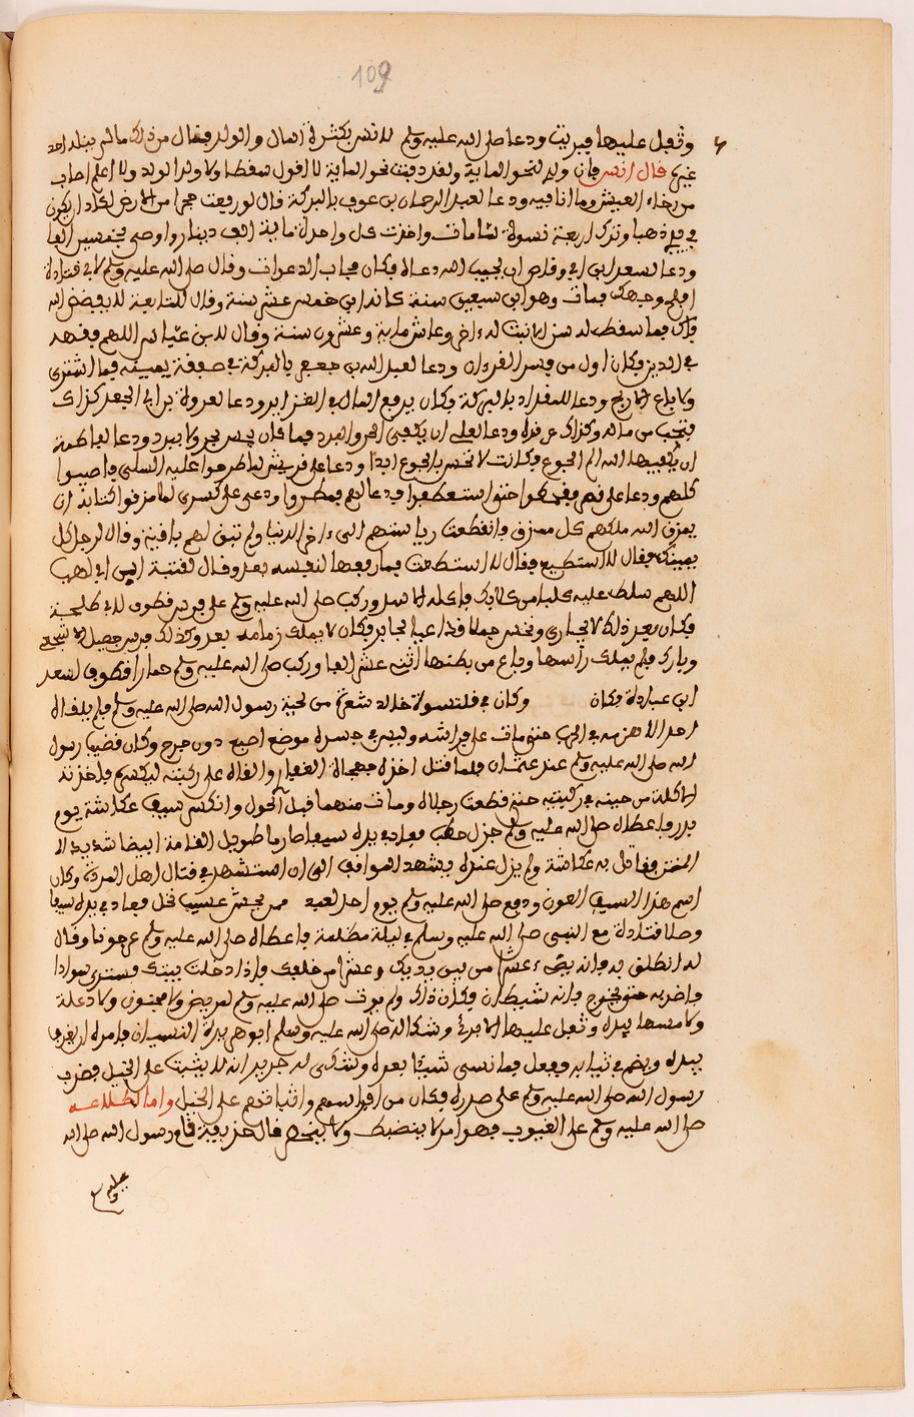 109
وتفل عليها فبريت ودعا صلى الله عليه وسلم لانس بكثرة المال والولد فقال من ذلك ما لم ينله احد
غيره قال انس فان ولدي لنحو الماية ولقد دفنت نحو الماية لا اقول سقطا ولا ولد الولد ولا اعلم اصاب
من رخاء العيش وما انا فيه ودعا لعبد الرحمان بن عوف بالبركة قال لو رفعت حجرا من الارض لكاد ان يكون
في يدي ذهبا وترك اربعة نسوة لما مات واخذت كل واحدة ماية الف دينار واوصى بخمسين الفا
ودعا لسعد ابن ابي وقاص ان يجيب الله دعاه فكان مجاب الدعوات وقال صلى الله عليه وسلم لابي قتادة
افلح وجهك فمات وهو ابن سبعين سنة كانه ابن خمس عشر سنة وقال للنابغة لا يفضض الله
فاك فما سقط له سن الا نبت له اخر وعاش ماية وعشرون سنة وقال لابن عباس اللهم فقهه
في الدين فكان اول من فسر القرءان ودعا لعبد الله بن جعفر بالبركة في صفقة يمينه فما اشترى
ولا باع الا ربح ودعا للمقداد بالبركة فكان يرفع المال في الغراير ودعا لعروة بن ابي الجعد كذلك
فتجب من ماله وكذلك غرقدة ودعا لعلي ان يكفى الحر والبرد فما كان يحس بحر ولا ببرد ودعا لفاطمة
ان يكفيها الله الم الجوع فكانت لا تحس بالجوع ابدا ودعا على قريش لما طرحوا عليه السلى فاصيبوا
كلهم ودعا على مضر فقحطوا حتى استعطفوا فدعا لهم فمطروا ودعى على كسرى لما مزقوا كتابه ان
يمزق الله ملكهم كل ممزق فانقطعت رياستهم الى ءاخر الدنيا ولم تبق لهم باقية وقال لرجل كل
بيمينك فقال لا استطيع فقال لا استطعت فما رفعها لنفسه بعد وقال لعتبة ابن ابي لهب
اللهم سلط عليه كلبا من كلابك فاكله الاسد وركب صلى الله عليه وسلم على فرس قطوف لابي طلحة
فكان بعد ذلك لا يجارى ونخس جملا قد اعيا لجابر فكان لا يملك زمامه بعد وكذلك فرس جعيل الاشجعي
وبارك فلم يملك راسها وباع من بطنها اثنى عشر الفا وركب صلى الله عليه وسلم حمارا قطوف لسعد
ابن عبادة فكان وكان في قلنسوة خالد شعرة من لحية رسول الله صلى الله عليه وسلم فلم يلقاه
احد الا هزمه في الحرب حتى مات على فراشه وليس في جسده موضع اصبع دون جرح وكان قضيب رسول
الله صلى الله عليه وسلم عند عثمان فلما قتل اخذه جهجاه الغفاري والقاه على ركبته ليكسره فاخذته
الاكلة من حينه في ركبتيه حتى قطعت رجلاه ومات منهما قبل الحول وانكسر سيف عكاشة يوم
بدر فاعطاه صلى الله عليه وسلم جزل حطب فعاد في يده سيفا صارما طويل القامة ابيضا شديد ال
المتن فقاتل به عكاشة ولم يزل عنده يشهد المواقف الى ان استشهد في قتال اهل الردة وكان
اسم هذا السيف العون ودفع صلى الله عليه وسلم يوم احد لعبد بن جحش عسيب نخل فعاد في يده سيفا
وصلا قتادة مع النبي صلى الله عليه وسلم في ليلة مظلمة فاعطاه صلى الله عليه وسلم عرجونا وقال
له انطلق به فانه يضيء عشرا من بين يديك وعشرا من خلفك فاذا دخلت بيتك فسترى سوادا
فاضربه حتى يخرج فانه شيطان فكان ذلك ولم يوت صلى الله عليه وسلم لمريض ولا مجنون ولا ذي علة
ولا مسها بيده وتفل عليها الا برئ وشكا له صلى الله عليه وسلم ابو هريرة النسيان فامره ان يغرف
بيده ويضم في ثيابه ففعل فما نسى شيئا بعده وشكى له جرير انه لا يثبت على الخيل فضرب
رسول الله صلى الله عليه وسلم على صدره فكان من افرسهم واثباتهم على الخيل واما اطلاعه
صلى الله عليه وسلم على الغيوب فهو امر لا ينضبط ولا ينحصر قال حذيفة قام رسول الله صلى الله
عليه وسلم